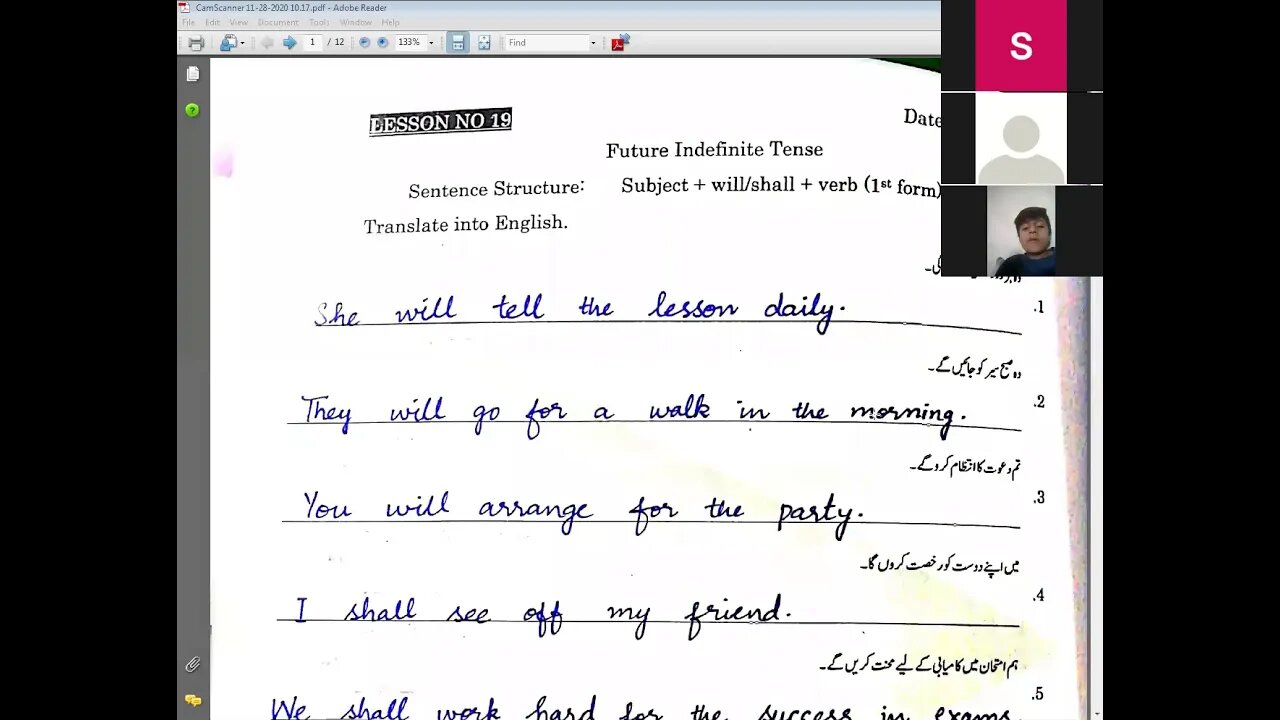 CamScanner 11-28-2020 10.17.pdf - Adobe Reader
File Edit View Document Tools Window Help
1 / 12 133% Find
S
LESSON NO 19
Date
Future Indefinite Tense
Sentence Structure: Subject + will/shall + verb (1st form)
Translate into English.
.1
She will tell the lesson daily.
وہ صبح سیر کو جائیں گے۔
.2
They will go for a walk in the morning.
تم دعوت کا انتظام کرو گے۔
.3
You will arrange for the party.
میں اپنے دوست کو رخصت کروں گا۔
.4
I shall see off my friend.
ہم امتحان میں کامیابی کے لیے محنت کریں گے۔
.5
We shall work hard for the success in exams.